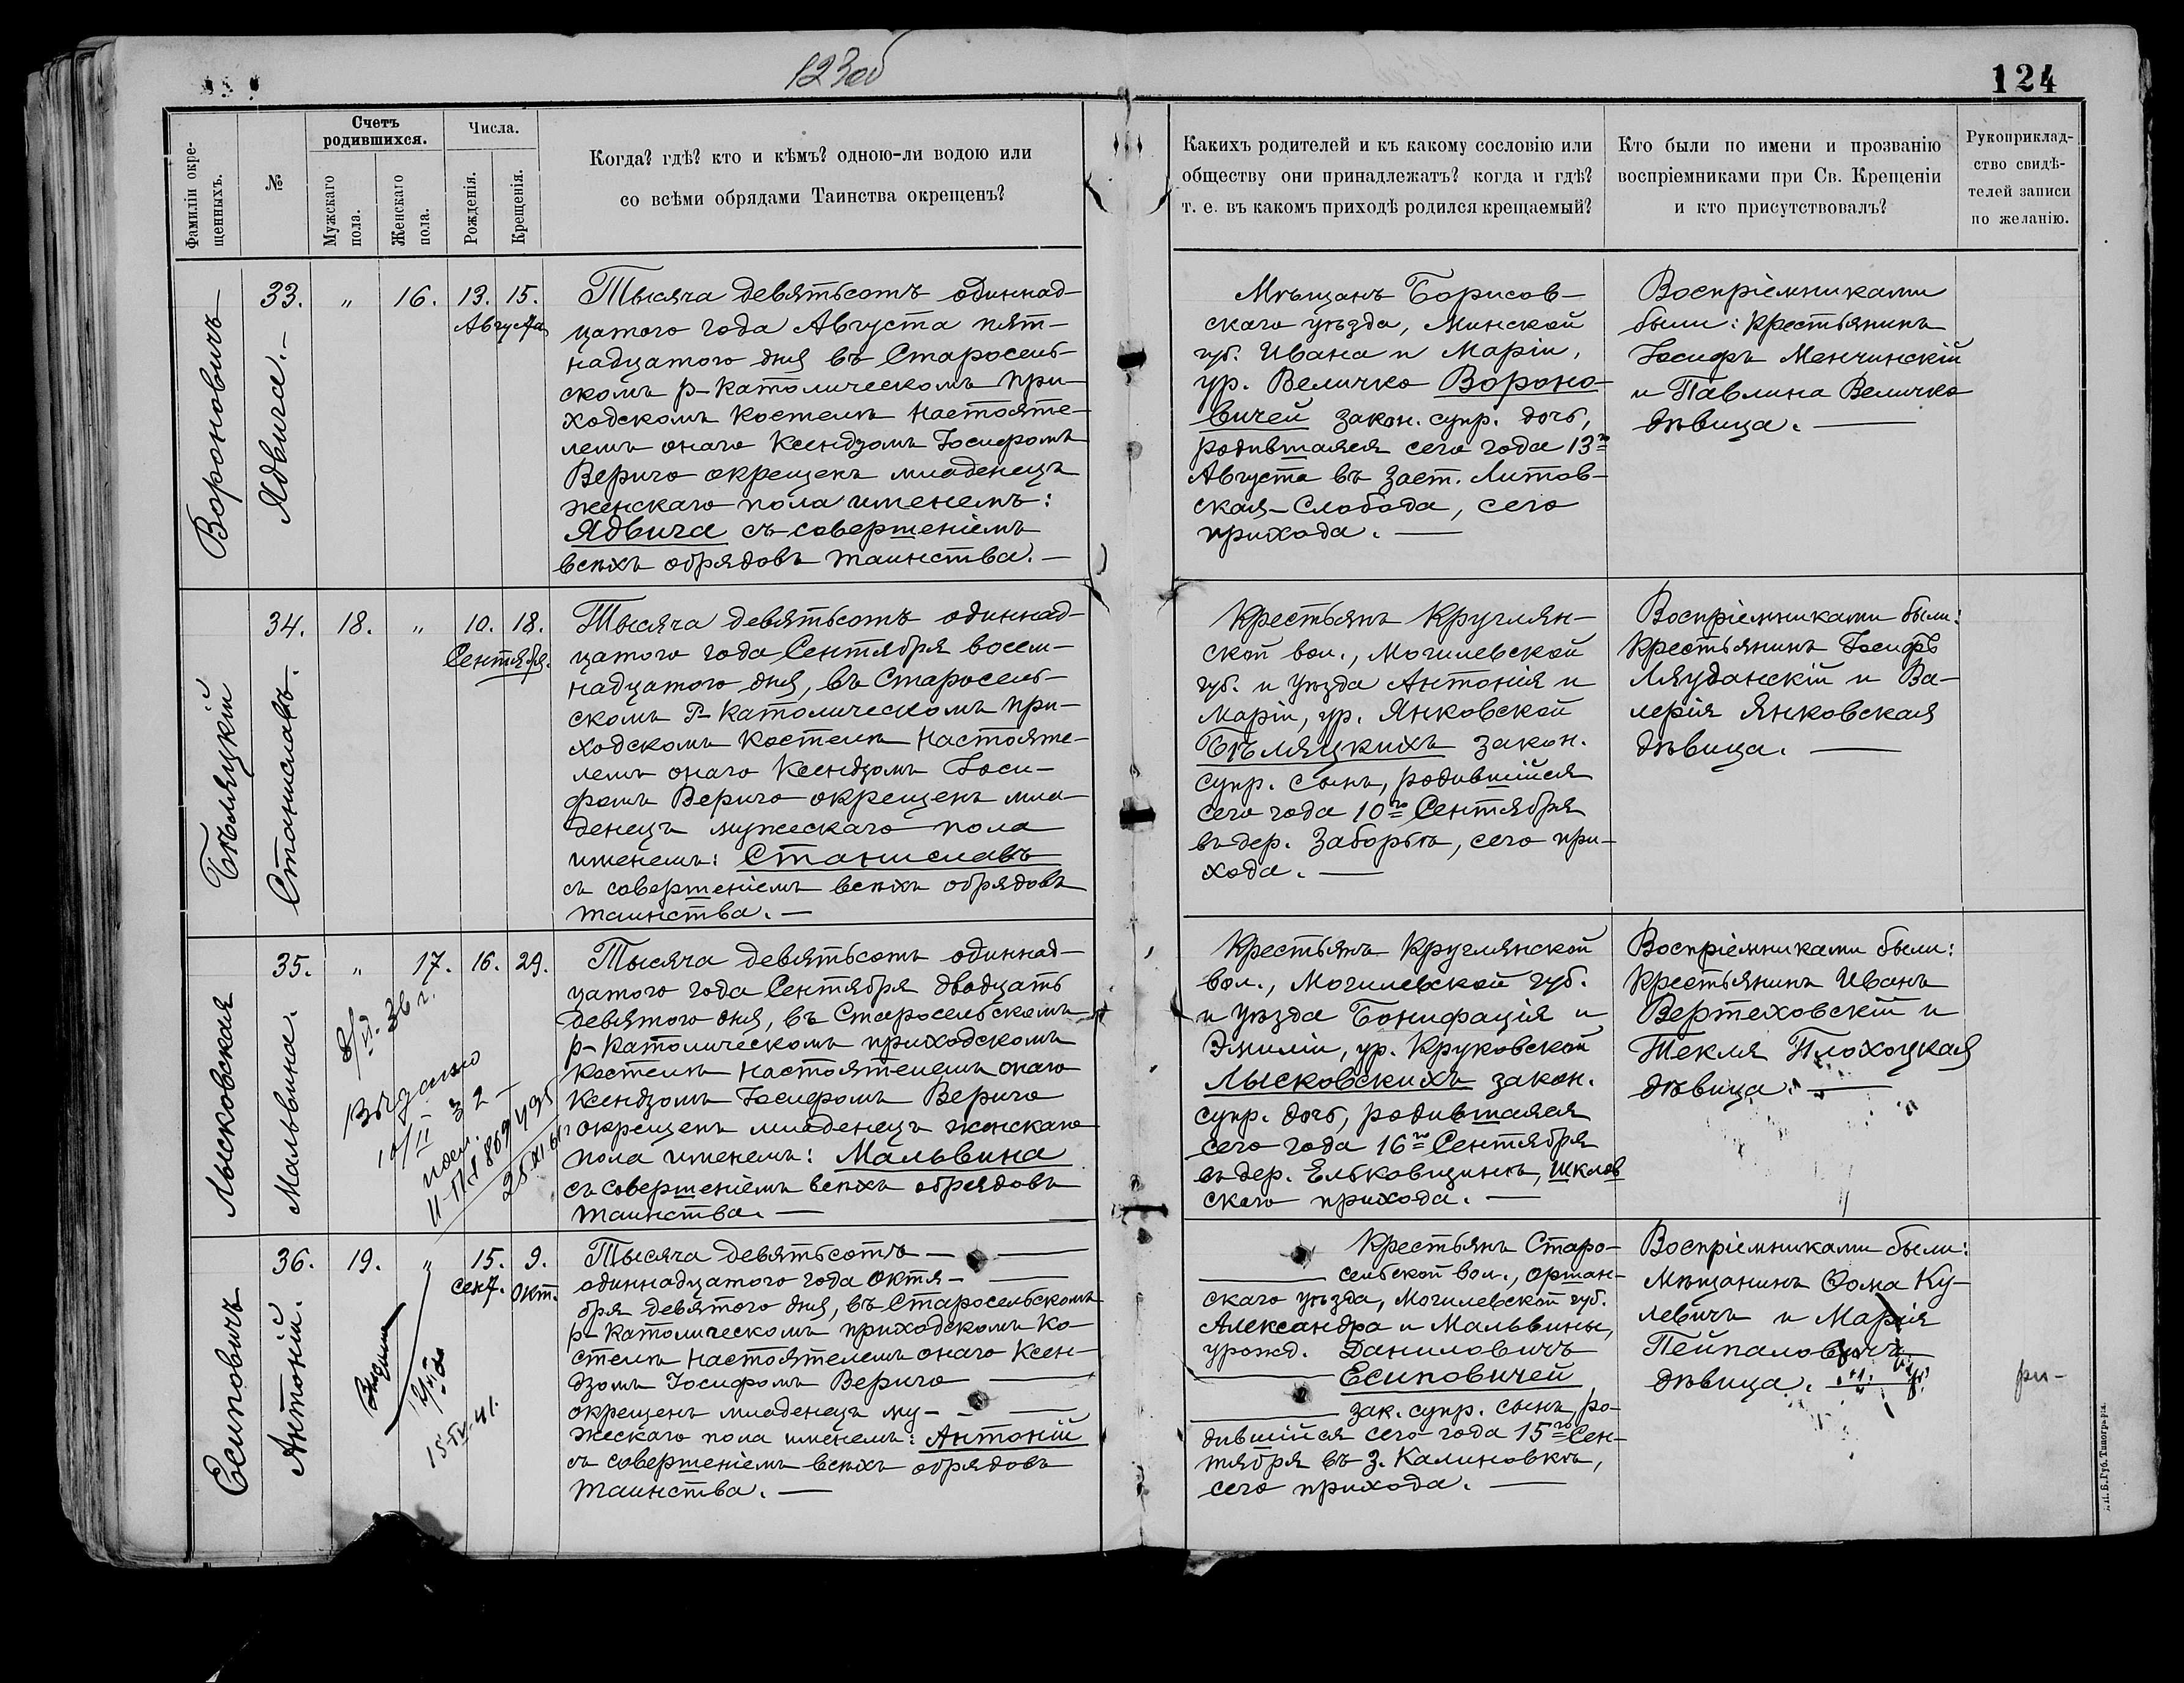 123об
124
Фамиліи окре-
щенныхъ.
№
Счетъ
родившихся.
Мужскаго
пола.
Женскаго
пола.
Числа.
Рожденія.
Крещенія.
Когда? гдѣ? кто и кѣмъ? одною-ли водою или
со всѣми обрядами Таинства окрещенъ?
Какихъ родителей и къ какому сословію или
обществу они принадлежатъ? когда и гдѣ?
т. е. въ какомъ приходѣ родился крещаемый?
Кто были по имени и прозванію
воспріемниками при Св. Крещеніи
и кто присутствовалъ?
Рукоприклад-
ство свидѣ-
телей записи
по желанію.
Вороновичъ
Ядвига.
33. " 16. 13. 15.
Августа
Тысяча девятьсотъ одиннад-
цатого года Августа пят-
надцатого дня въ Старосель-
скомъ р-католическомъ при-
ходскомъ костелѣ Настояте-
лемъ онаго Ксендзомъ Іосифомъ
Вериго окрещенъ младенецъ
женскаго пола именемъ:
Ядвига съ совершеніемъ
всѣхъ обрядовъ таинства.
Мѣщанъ Борисов-
скаго уѣзда, Минской
губ. Ивана и Маріи,
ур. Величко Вороно-
вичей закон. супр. дочь,
родившаяся сего года 13го
Августа въ заст. Литов-
ская-Слобода, сего
прихода.
Воспріемниками
были: крестьянинъ
Іосифъ Менчинскій
и Павлина Величко
дѣвица.
Бѣляцкій
Станиславъ.
34. 18. " 10. 18.
Сентября.
Тысяча девятьсотъ одиннад-
цатого года Сентября восем-
надцатого дня, въ Старосель-
скомъ Р-католическомъ при-
ходскомъ костелѣ Настояте-
лемъ онаго Ксендзомъ Іоси-
фомъ Вериго окрещенъ мла-
денецъ мужескаго пола
именемъ: Станиславъ
съ совершеніемъ всѣхъ обрядовъ
таинства.
Крестьянъ Круглян-
ской вол., Могилевской
губ. и уѣзда Антонія и
Маріи, ур. Янковской
Бѣляцкихъ закон.
супр. сынъ, родившійся
сего года 10го Сентября
въ дер. Заборьѣ, сего при-
хода.
Воспріемниками были:
крестьянинъ Іосифъ
Ляуданскій и Ва-
лерія Янковская
дѣвица.
Лысковская
Мальвина.
35. " 17. 16. 29.
36 г.
Выдано
10/II 32
25 XI 61
Тысяча девятьсотъ одиннад-
цатого года Сентября двадцать
девятого дня, въ Старосельскомъ
р-католическомъ приходскомъ
костелѣ Настоятелемъ онаго
Ксендзомъ Іосифомъ Вериго
окрещенъ младенецъ женскаго
пола именемъ: Мальвина
съ совершеніемъ всѣхъ обрядовъ
таинства.
Крестьянъ Круглянской
вол., Могилевской губ.
и уѣзда Бонифація и
Эмиліи, ур. Круковской
Лысковскихъ закон.
супр. дочь, родившаяся
сего года 16го Сентября
въ дер. Ельковщинѣ, Шклов
скаго прихода.
Воспріемниками были:
крестьянинъ Иванъ
Вертеховскій и
Текля Плохоцкая
дѣвица.
Есиповичъ
Антоній.
36. 19. " 15. 9.
сент. окт.
15-IV-41.
Тысяча девятьсотъ
одиннадцатого года Октя-
бря девятого дня, въ Старосельскомъ
р-католическомъ приходскомъ ко-
стелѣ Настоятелемъ онаго Ксен-
дзомъ Іосифомъ Вериго
окрещенъ младенецъ му-
жескаго пола именемъ: Антоній
съ совершеніемъ всѣхъ обрядовъ
таинства.
Крестьянъ Старо-
сельской вол., Оршан-
скаго уѣзда, Могилевской губ.
Александра и Мальвины,
урожд. Даниловичъ
Есиповичей
зак. супр. сынъ, ро-
дившійся сего года 15го Сен-
тября въ з. Калиновкѣ,
сего прихода.
Воспріемниками были:
Мѣщанинъ Ѳома Ку-
левичъ и Марія
Пейпаловичъ
дѣвица.
ри-
Губ. Типографія.